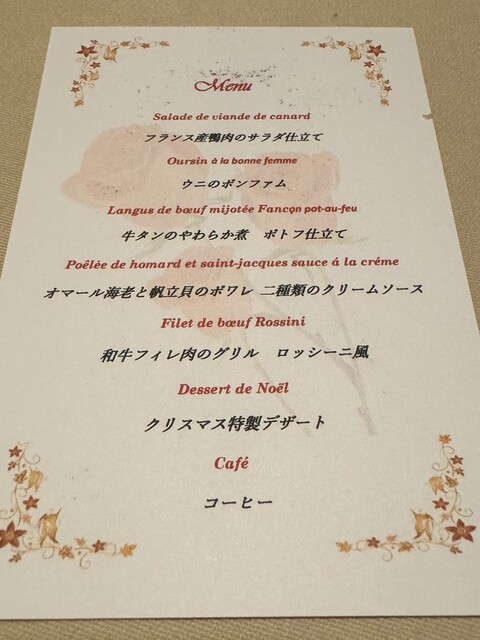 Menu
Salade de viande de canard
フランス産鴨肉のサラダ仕立て
Oursin á la bonne femme
ウニのボンファム
Langus de bœuf mijotée Fancọn pot-au-feu
牛タンのやわらか煮　ポトフ仕立て
Poêlèe de homard et saint-jacques sauce á la créme
オマール海老と帆立貝のポワレ 二種類のクリームソース
Filet de bœuf Rossini
和牛フィレ肉のグリル　ロッシーニ風
Dessert de Noël
クリスマス特製デザート
Café
コーヒー